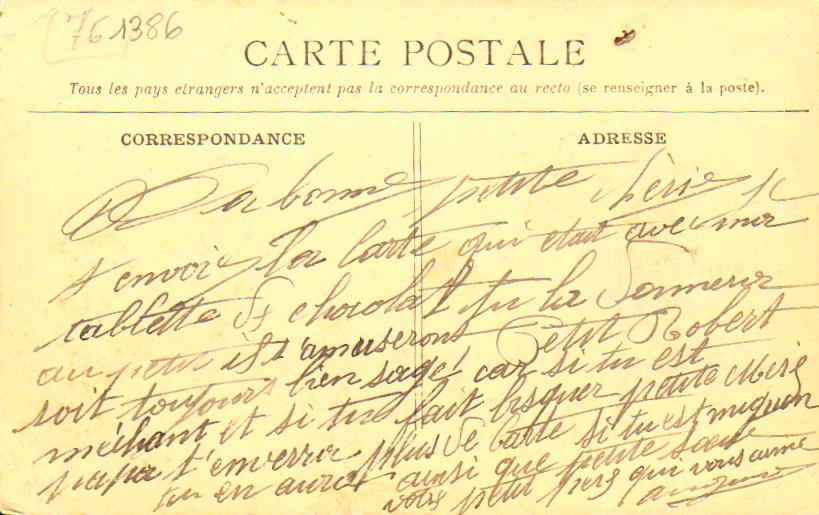 761386
CARTE POSTALE
Tous les pays etrangers n'acceptent pas la correspondance au recto (se renseigner à la poste).
CORRESPONDANCE
ADRESSE
Ma bonne petite chérie je
t'envoie la carte qui était avec une
tablette de chocolat tu la donnera
au petit il s'amuseront Petit Robert
soit toujours bien sage car si tu est
méchant et si tu fait bisquer petite Mère
papa t'enverra plus de carte si tu est mignon
tu en aura ainsi que petite soeur
votre petit père qui vous aime